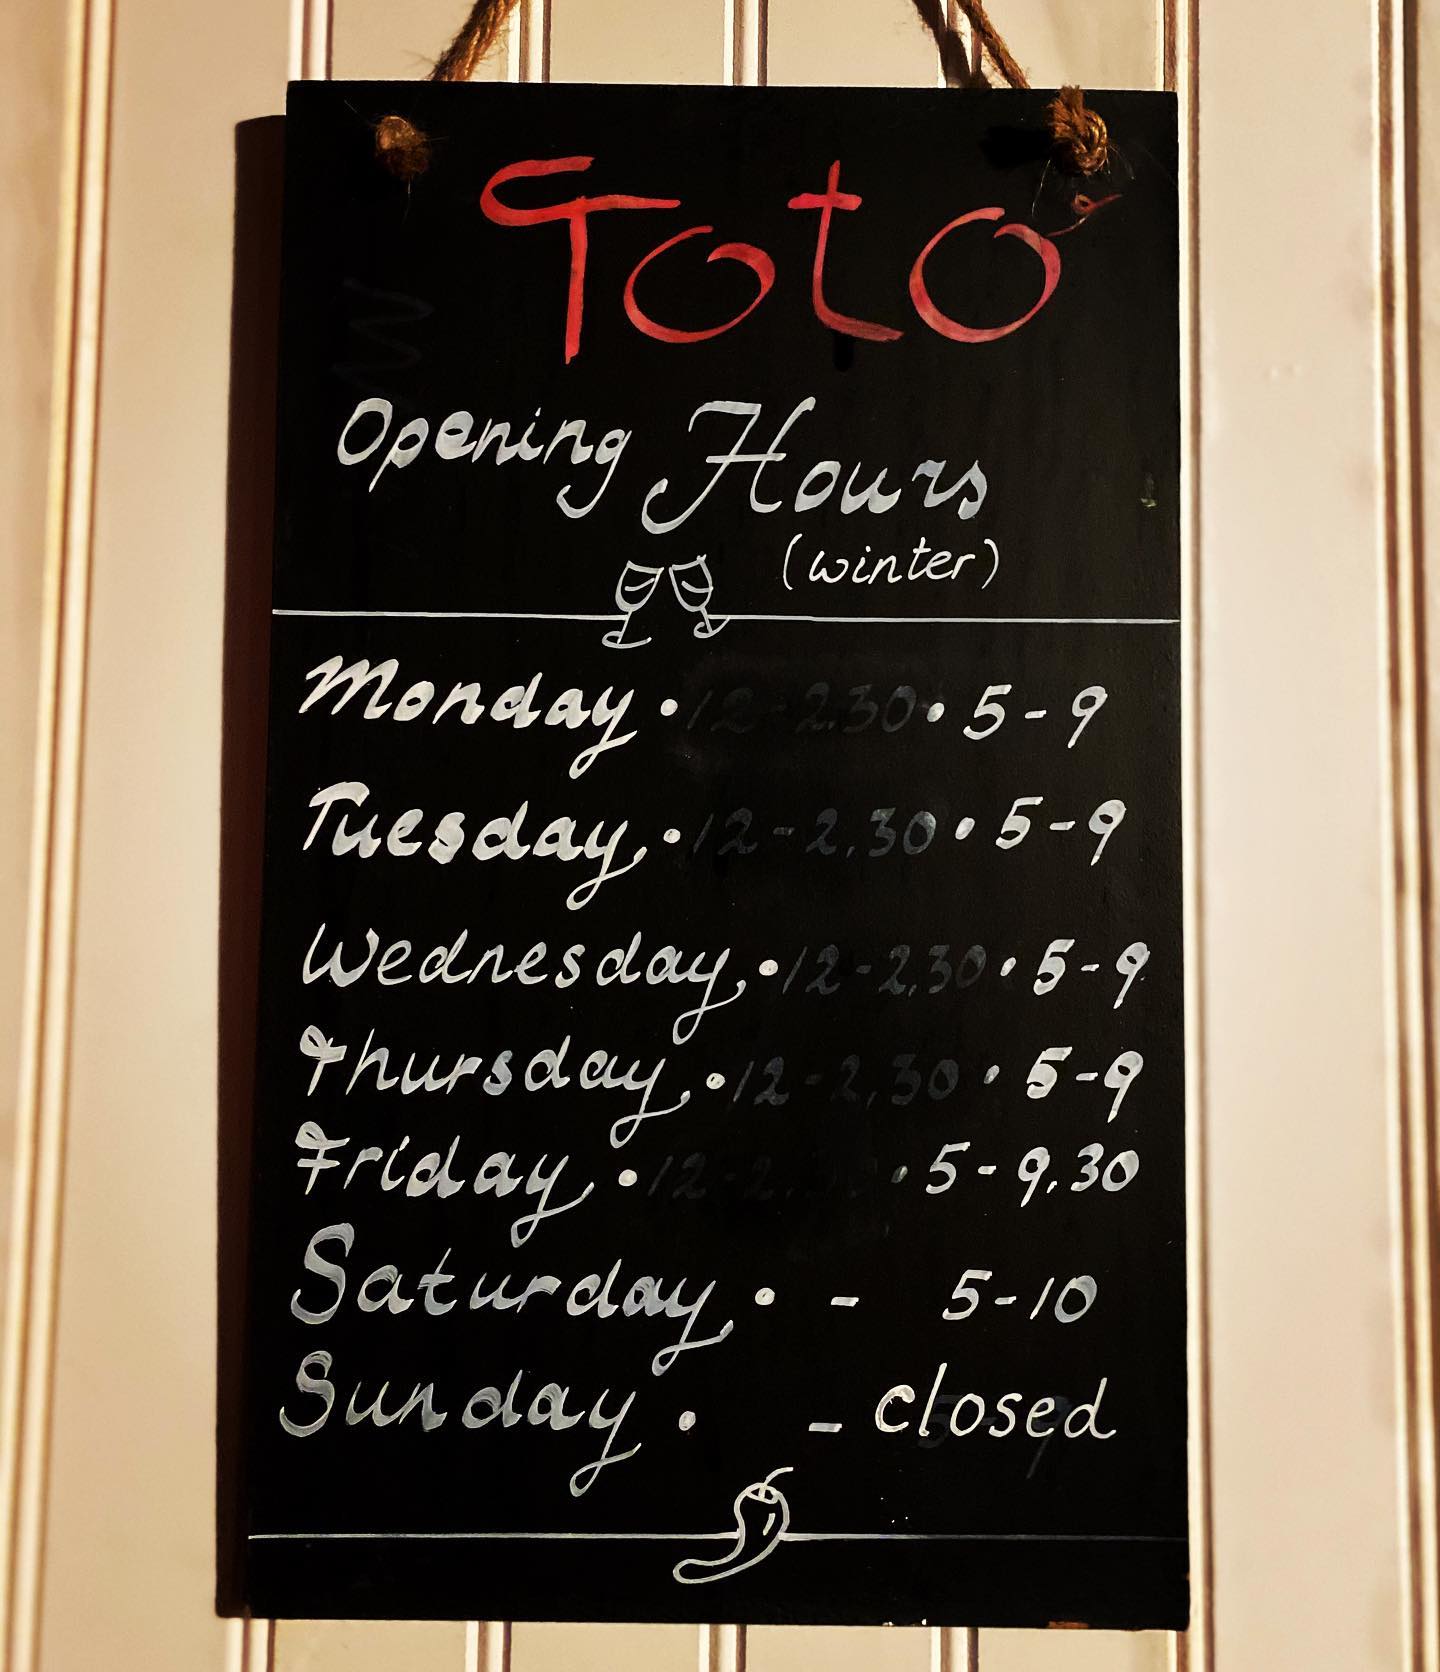 Toto
Opening Hours
(winter)
Monday • 12-2.30 • 5-9
Tuesday • 12-2.30 • 5-9
Wednesday • 12-2.30 • 5-9
Thursday • 12-2.30 • 5-9
Friday • 12-2.30 • 5-9.30
Saturday • - 5-10
Sunday • - closed